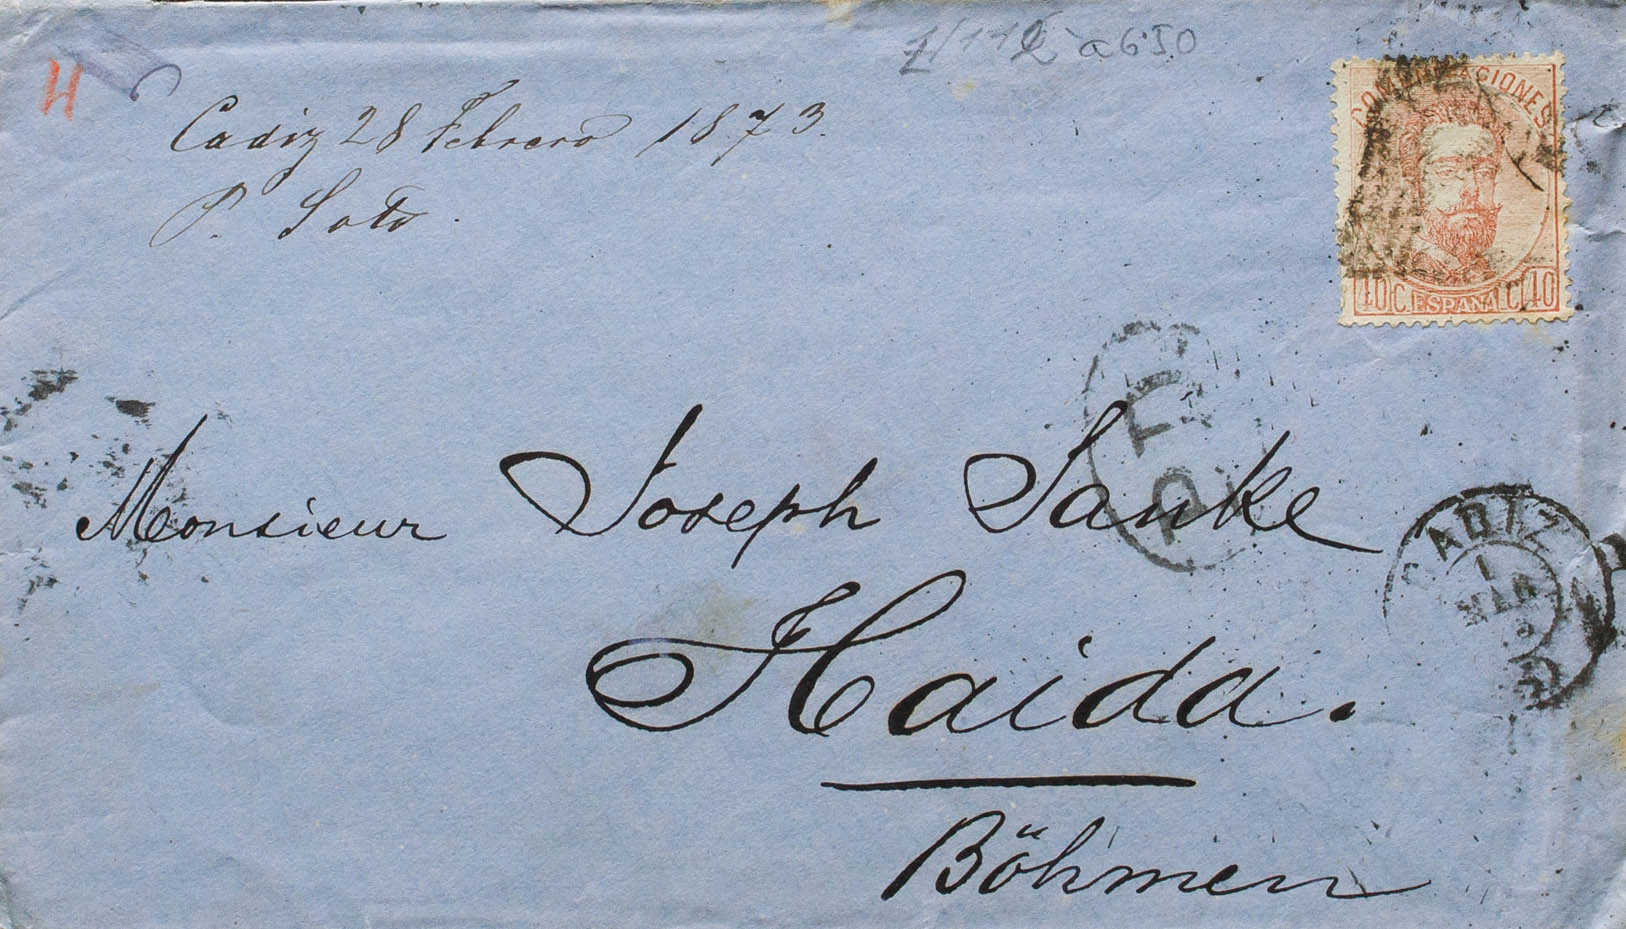 H
a 6 50
Cadiz 28 Febrero 1873.
P. Soto.
COMUNICACIONES
40 C. ESPAÑA C. 40
P.D.
CADIZ
1
MAR
Monsieur Joseph Janke
Haida.
Böhmen